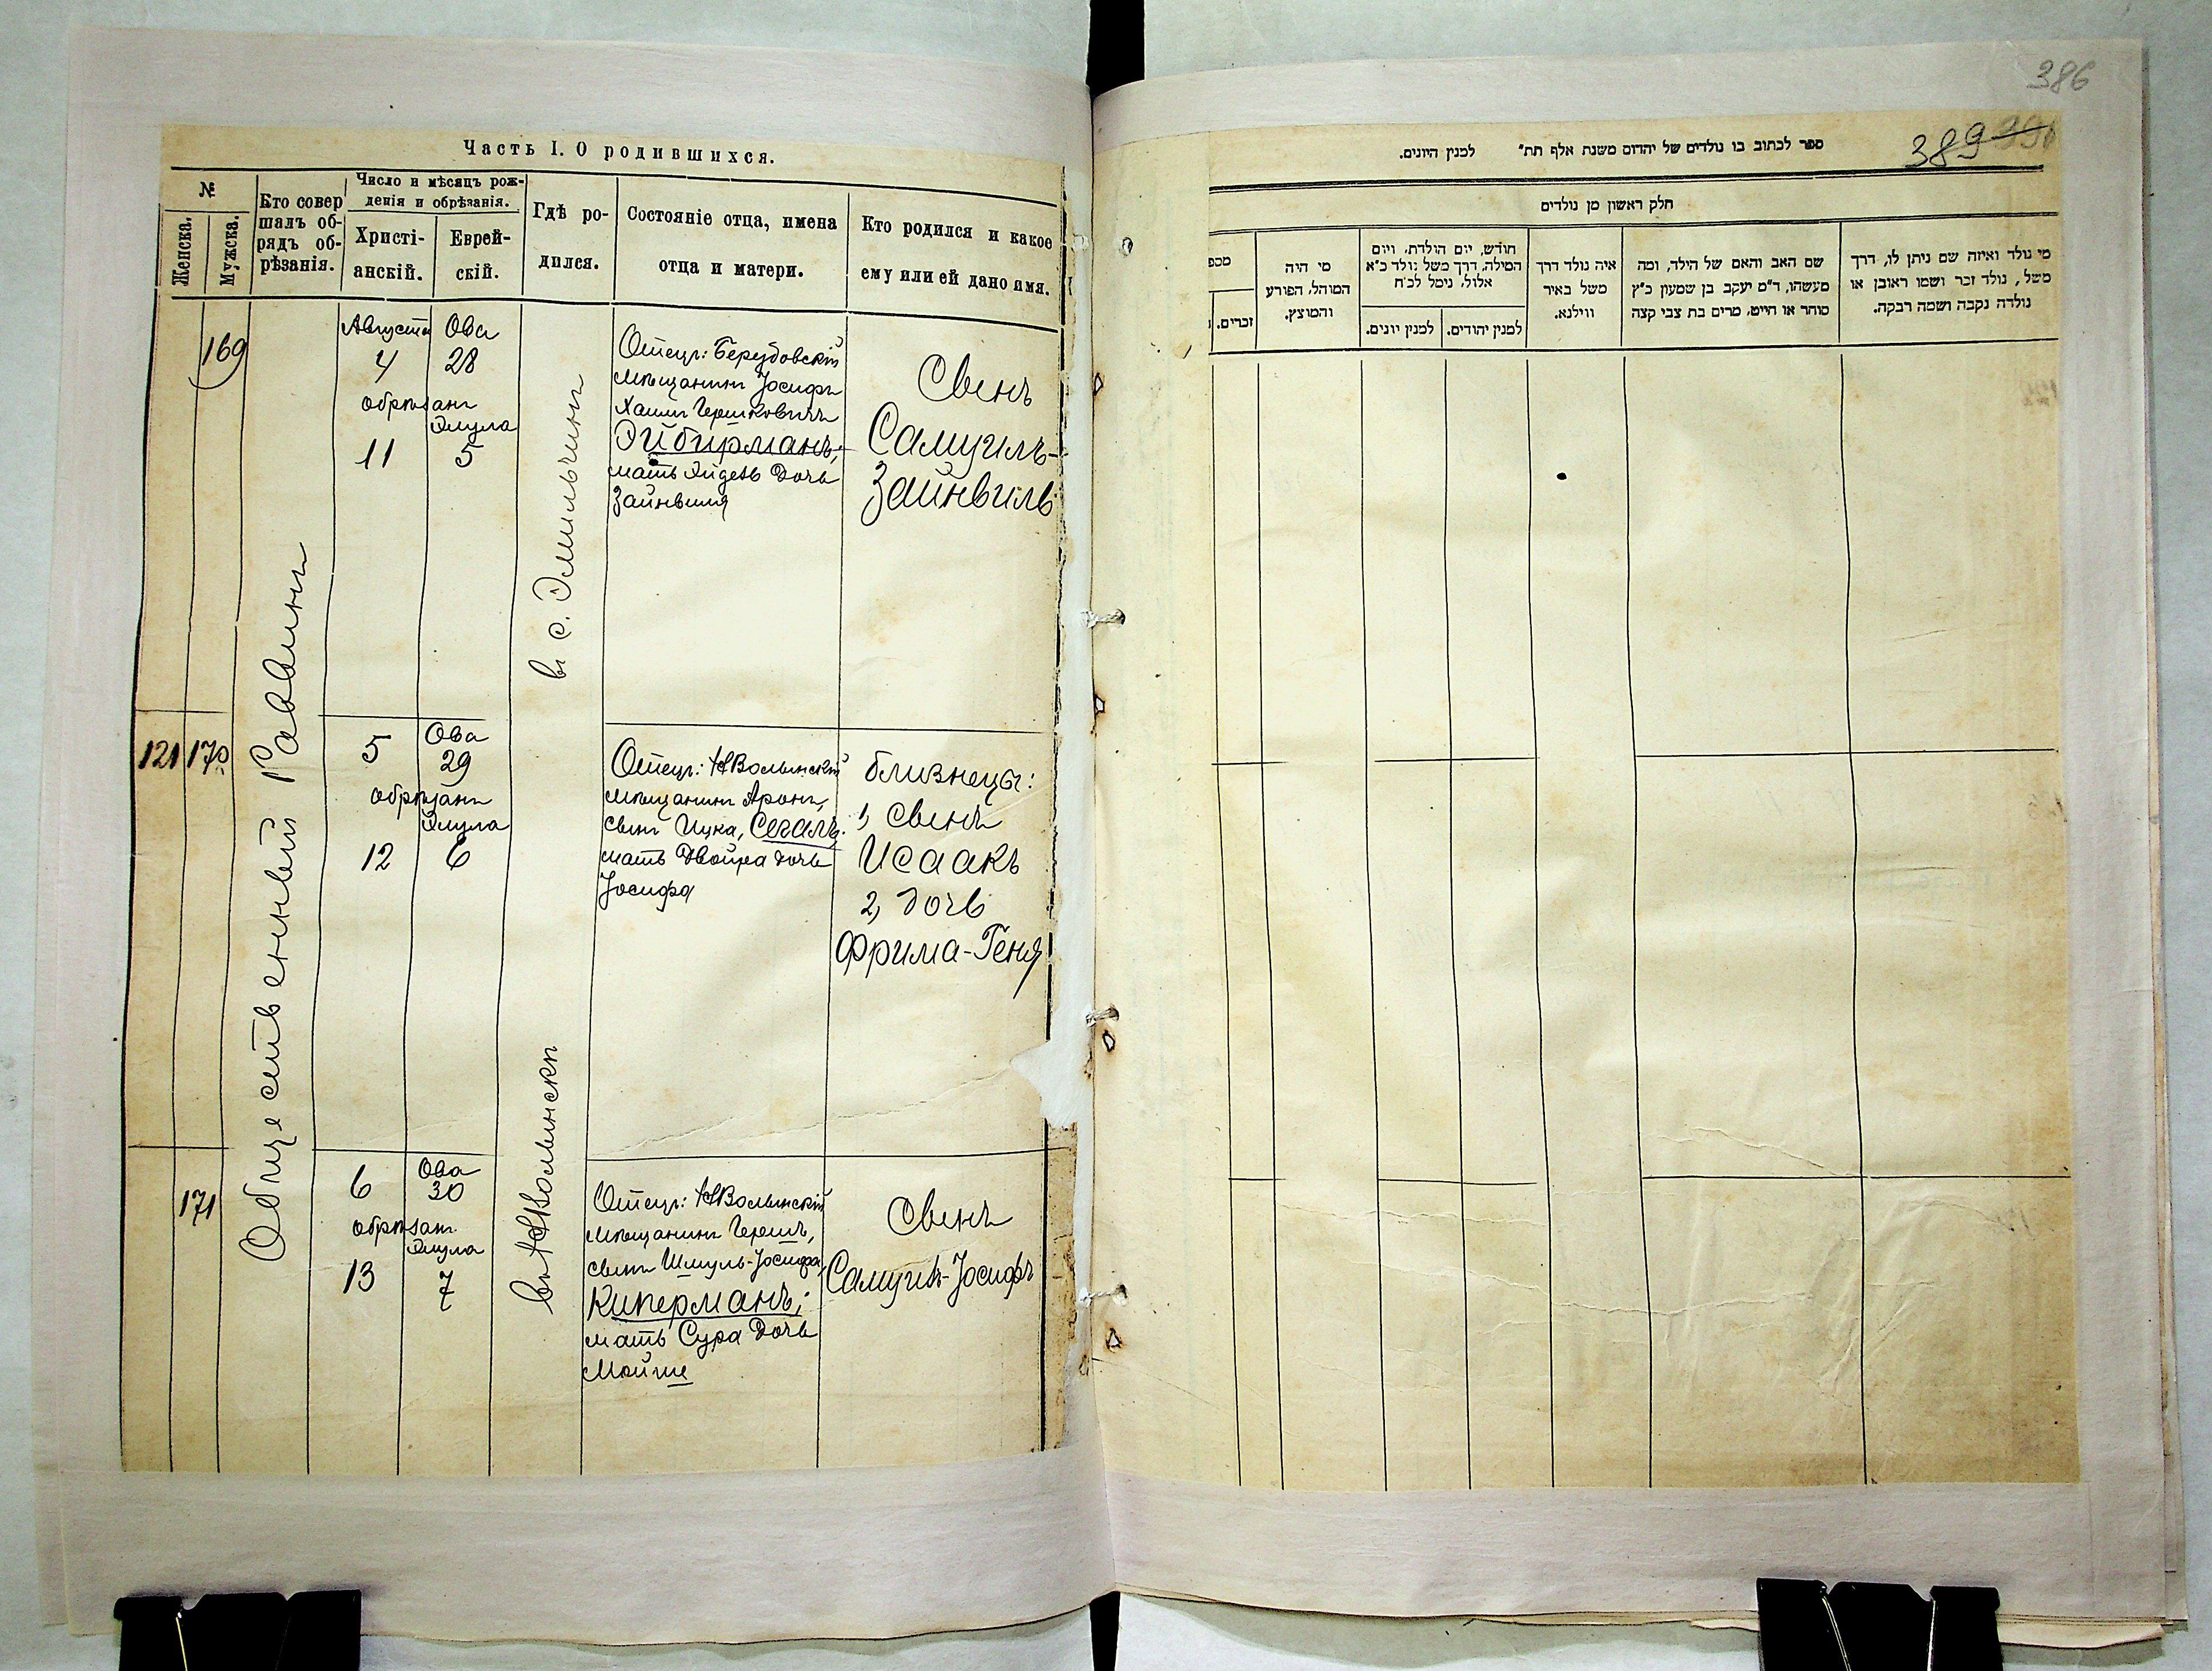 Часть I. О родившихся.
№
Женска.
Мужска.
Кто совер
шалъ об-
рядъ об-
рѣзанія.
Число и мѣсяцъ рож-
денія и обрѣзанія.
Христі-
анскій.
Еврей-
скій.
Гдѣ ро-
дился.
Состояніе отца, имена
отца и матери.
Кто родился и какое
ему или ей дано имя.
Общественный Раввинъ
169
Августа
4
Ова
28
обрѣзанъ
Элула
11
5
в с. Эмильчинѣ
Отецъ:
мѣщанинъ Іосифъ
Хаимъ Гершковичъ
Эйбирманъ;
мать дочь
Зайнвиля
Сынъ
Самуилъ-
Зайнвиль
121
170
5
Ова
29
обрѣзанъ
Элула
12
6
Отецъ: НВолынскій
мѣщанинъ Аронъ,
сынъ Ицка, Сегалъ.
мать Двойра дочь
Іосифа
близнецы:
1, сынъ
Исаакъ
2, дочь
Фрима-Геня
171
6
Ова
30
обрѣзанъ
Элула
13
7
въ НВолынскѣ
Отецъ: НВолынскій
мѣщанинъ Гершъ,
сынъ Шмуль-Іосифа,
Киперманъ;
мать Сура дочь
Мойше
Сынъ
Самуилъ-Іосифъ
386
389
ספר לכתוב בו נולדים של יהדום משנת אלף תת״ למנין היונים.
חלק ראשון מן נולדים
מי נולד ואיזה שם ניתן לו, דרך
משל, נולד זכר ושמו ראובן או
נולדה נקבה ושמה רבקה.
שם האב והאם של הילד, ומה
מעשהו, ד״מ יעקב בן שמעון כ״ץ
סוחר או חייט, מרים בת צבי קצה
איה נולד דרך
משל באיר
ווילנא.
חודש, יום הולדת, ויום
המילה, דרך משל נולד כ״א
אלול, נימל לכ״ח
למנין יהודים.
למנין יונים.
מי היה
המוהל, הפורע
והמוצץ.
מספ
זכרים.